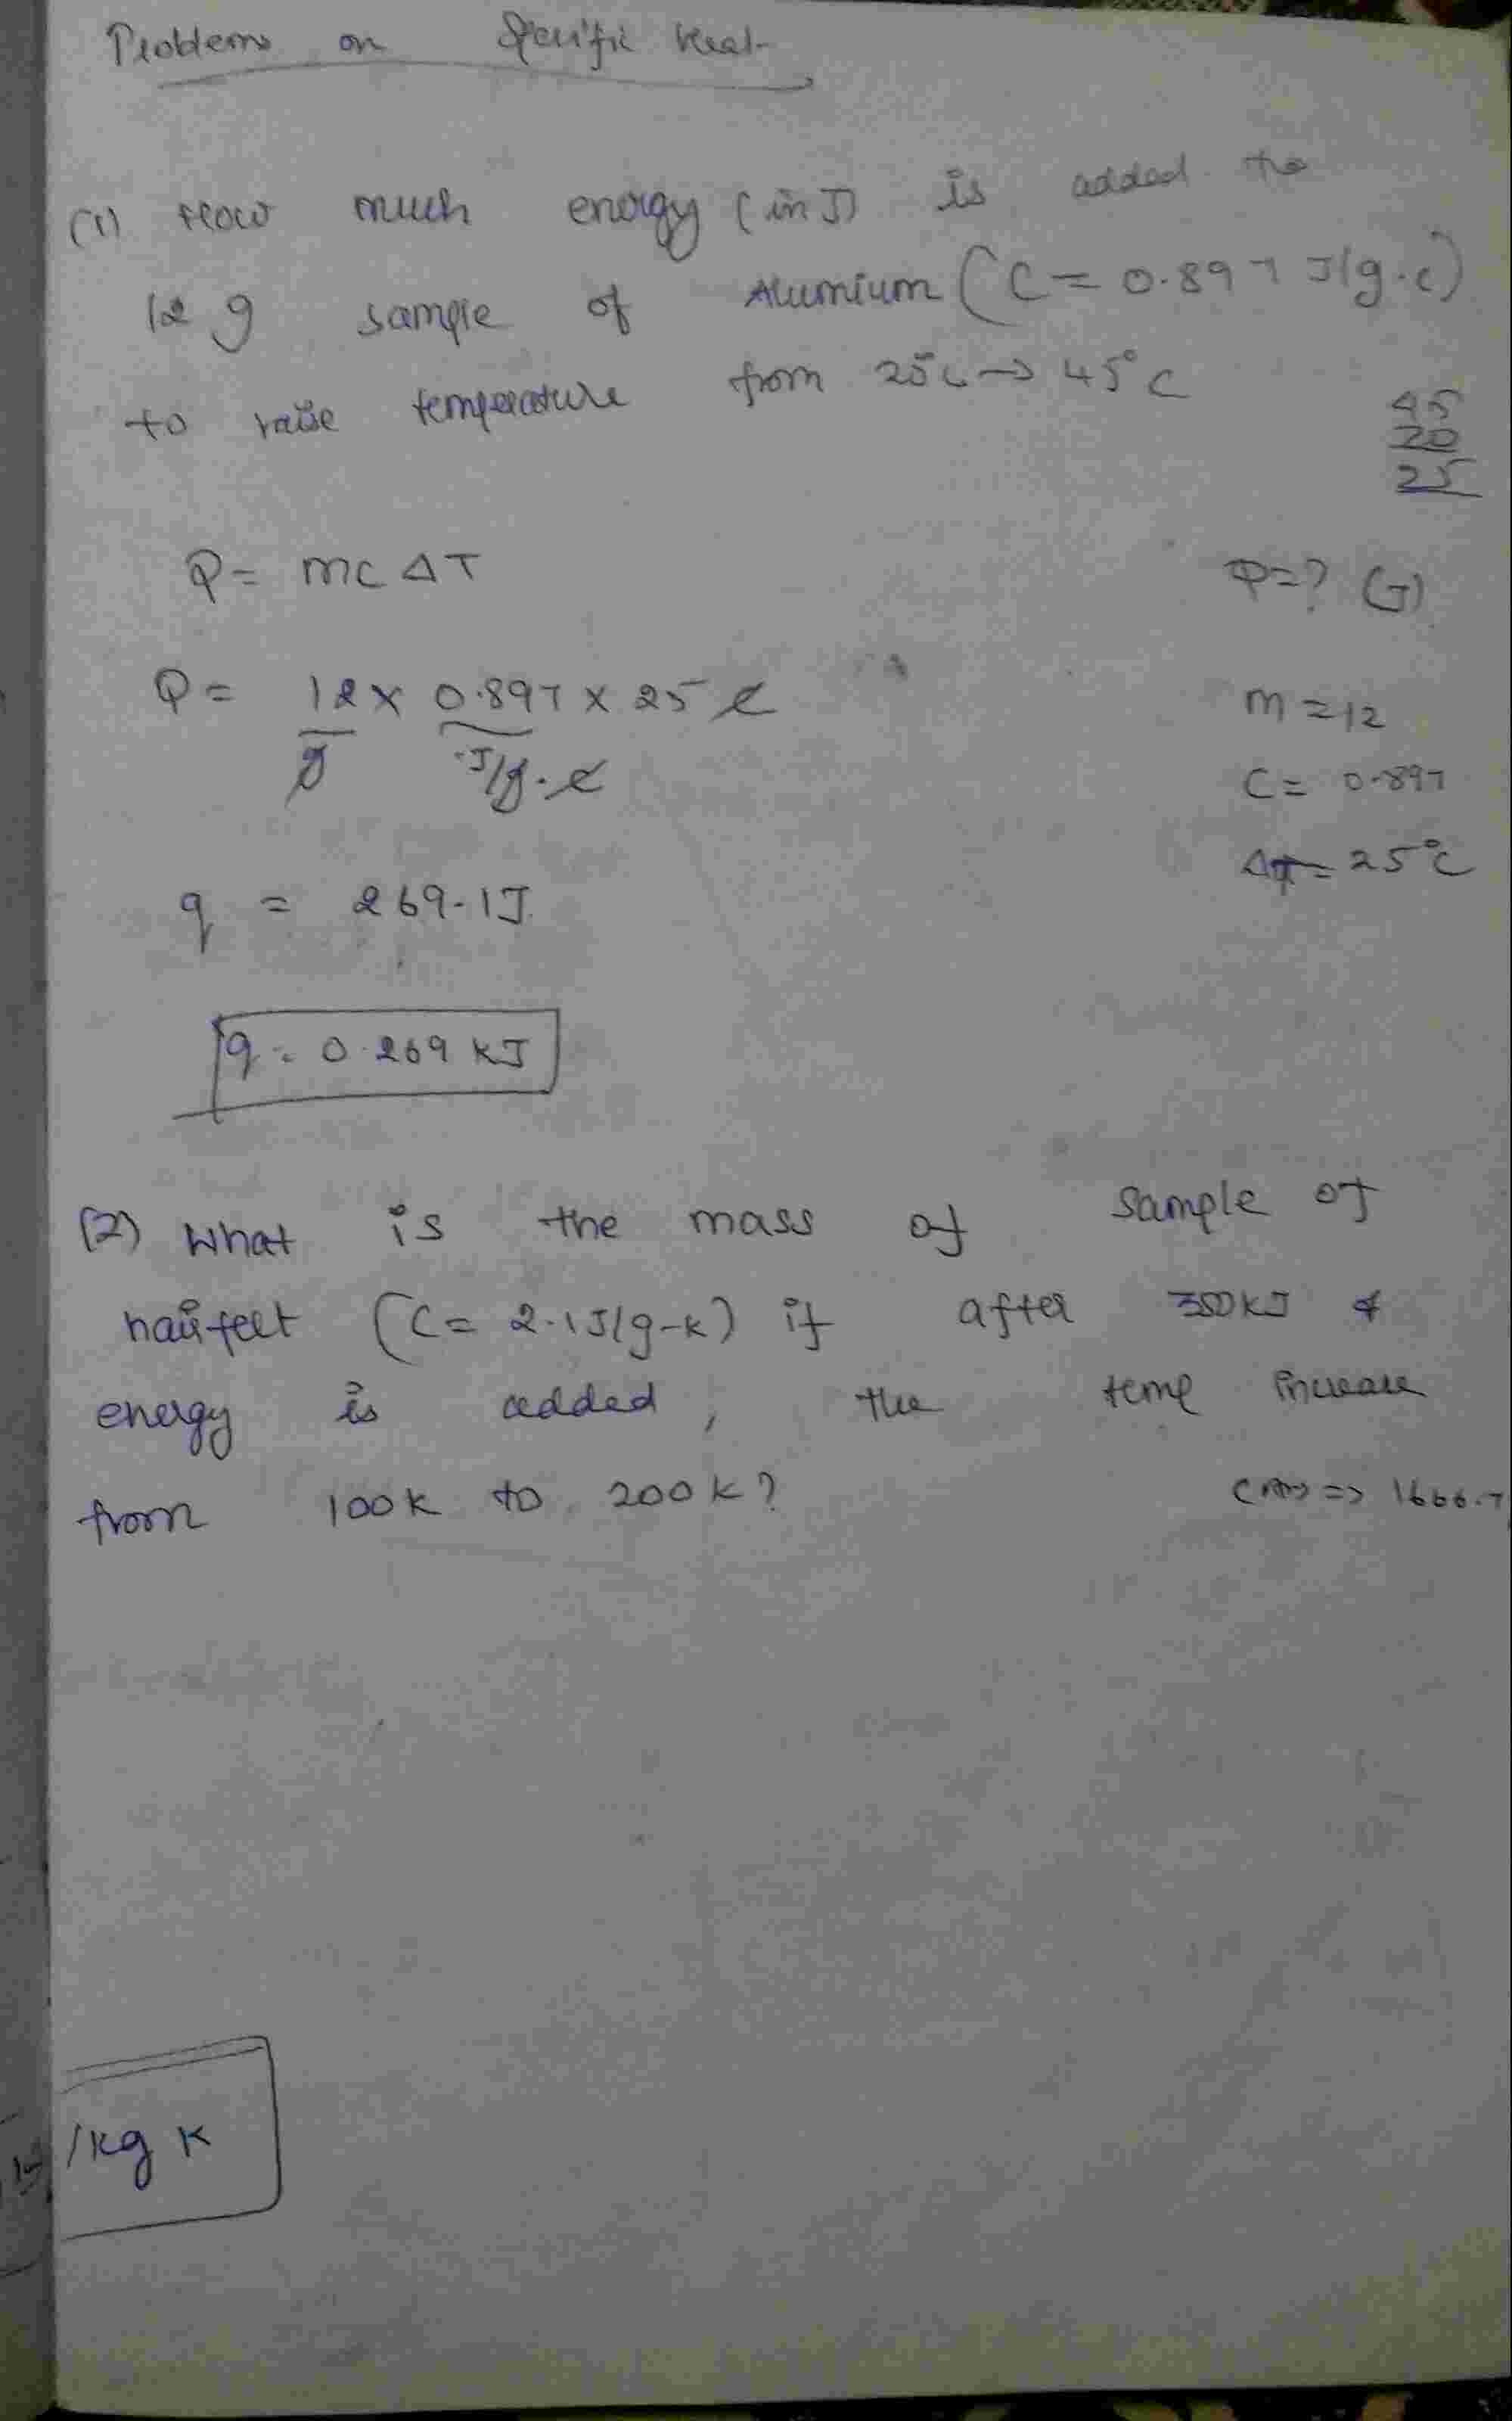 Problems on Specific heat
(1) How much energy (in J) is added the
12 g sample of Alumium (C = 0.897 J/g.c)
to raise temperature from 20°c → 45°C
45
20
25
Q = mc ΔT
Q=? (J)
Q = 12 x 0.897 x 25 c
g J/g.c
m = 12
C = 0.897
ΔT = 25°C
q = 269.1J
q = 0.269 KJ
(2) What is the mass of sample of
(C = 2.1J/g-k) if after 350KJ of
energy is added, the temp increase
from 100k to 200k?
(Ans => 1666.7
/kg K